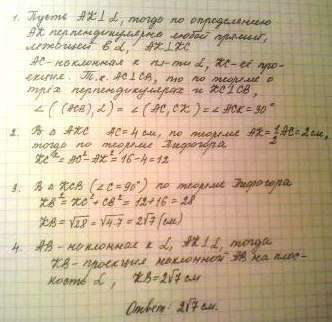 1. Пусть AK⊥α, тогда по определению
AK перпендикулярна любой прямой,
лежащей в α, AK⊥KC
AC - наклонная к пл-ти α, KC - её про-
екция. Т.к. AC⊥CB, то по теореме о
трёх перпендикулярах и KC⊥CB,
∠((ACB), α) = ∠(AC, CK) = ∠ACK = 30°
2. В Δ AKC AC = 4 см, по теореме AK = 1/2 AC = 2 см,
тогда по теореме Пифагора
KC² = AC² - AK² = 16 - 4 = 12
3. В Δ KCB (∠C = 90°) по теореме Пифагора
KB² = KC² + CB² = 12 + 16 = 28
KB = √28 = √4·7 = 2√7 (см)
4. AB - наклонная к α, AK⊥α, тогда
KB - проекция наклонной AB на плос-
кость α, KB = 2√7 см
Ответ: 2√7 см.